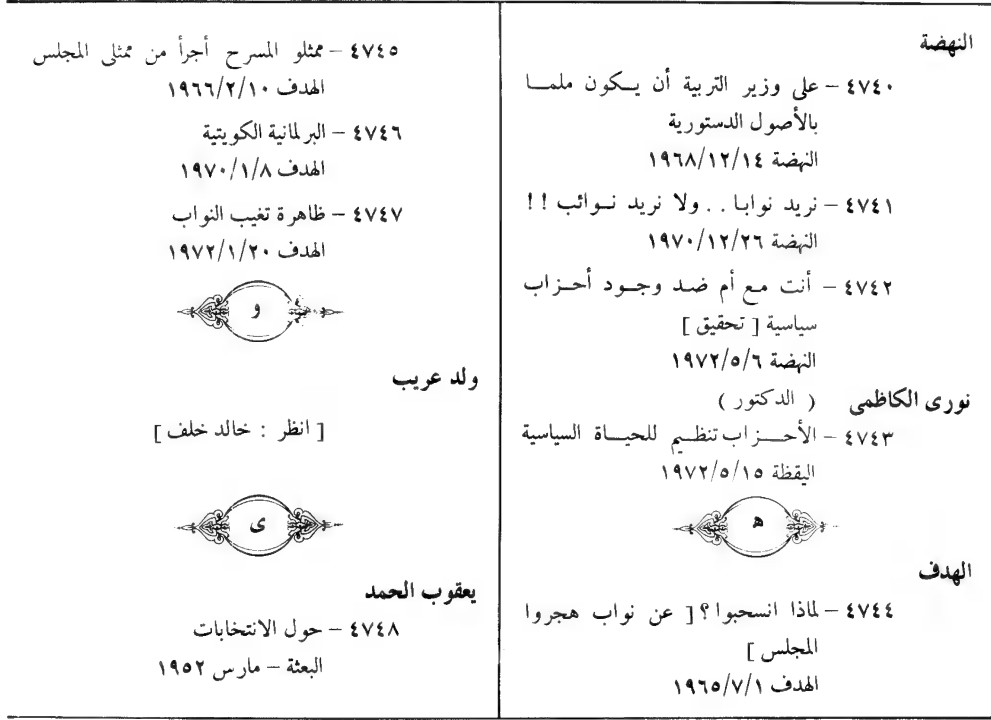 النهضة
٤٧٤٠ – على وزير التربية أن يـكون ملمـــا
بالأصول الدستورية
النهضة ١٩٦٨/١٢/١٤
٤٧٤١ – نريد نوابـا . . ولا نريد نـوائب ! !
النهضة ١٩٧٠/١٢/٢٦
٤٧٤٢ – أنت مـع أم ضـد وجـود أحـزاب
سياسية [ تحقيق ]
النهضة ١٩٧٢/٥/٦
نورى الكاظمى ( الدكتور )
٤٧٤٣ – الأحـــزاب تنظـيم للحيـاة السياسية
اليقظة ١٩٧٢/٥/١٥
ه
الهدف
٤٧٤٤ – لماذا انسحبوا ؟ [ عن نواب هجروا
المجلس ]
الهدف ١٩٦٥/٧/١
٤٧٤٥ – ممثلو المسرح أجرأ من ممثلى المجلس
الهدف ١٩٦٦/٢/١٠
٤٧٤٦ – البرلمانية الكويتية
الهدف ١٩٧٠/١/٨
٤٧٤٧ – ظاهرة تغيب النواب
الهدف ١٩٧٢/١/٢٠
و
ولد عريب
[ انظر : خالد خلف ]
ى
يعقوب الحمد
٤٧٤٨ – حول الانتخابات
البعثة – مارس ١٩٥٢